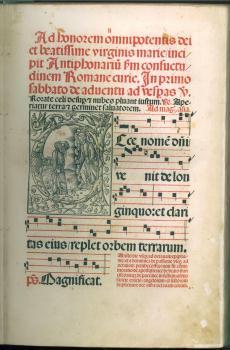 Ad honorem omnipotentis dei
et beatissime virginis marie inci-
pit Antiphonariũ sm consuetu
dinem Romane curie. In primo
sabbato de aduentu ad vespas V.
Rorate celi desup et nubes pluant iustum. Re. Ape-
riatur terra et germinet saluatorem. Ad mag. aña.
Ecce nomẽ dñi
ve nit de lon
ginquo: et clari
tas eius replet orbem terrarum.
ps. Magnificat.